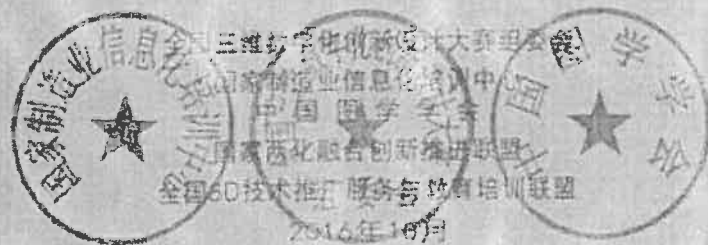 全国三维数字化创新设计大赛组委会
国家制造业信息化培训中心
中国图学学会
国家两化融合创新推进联盟
全国3D技术推广服务与教育培训联盟
2016年10月
国家制造业信息化培训中心
中国图学学会